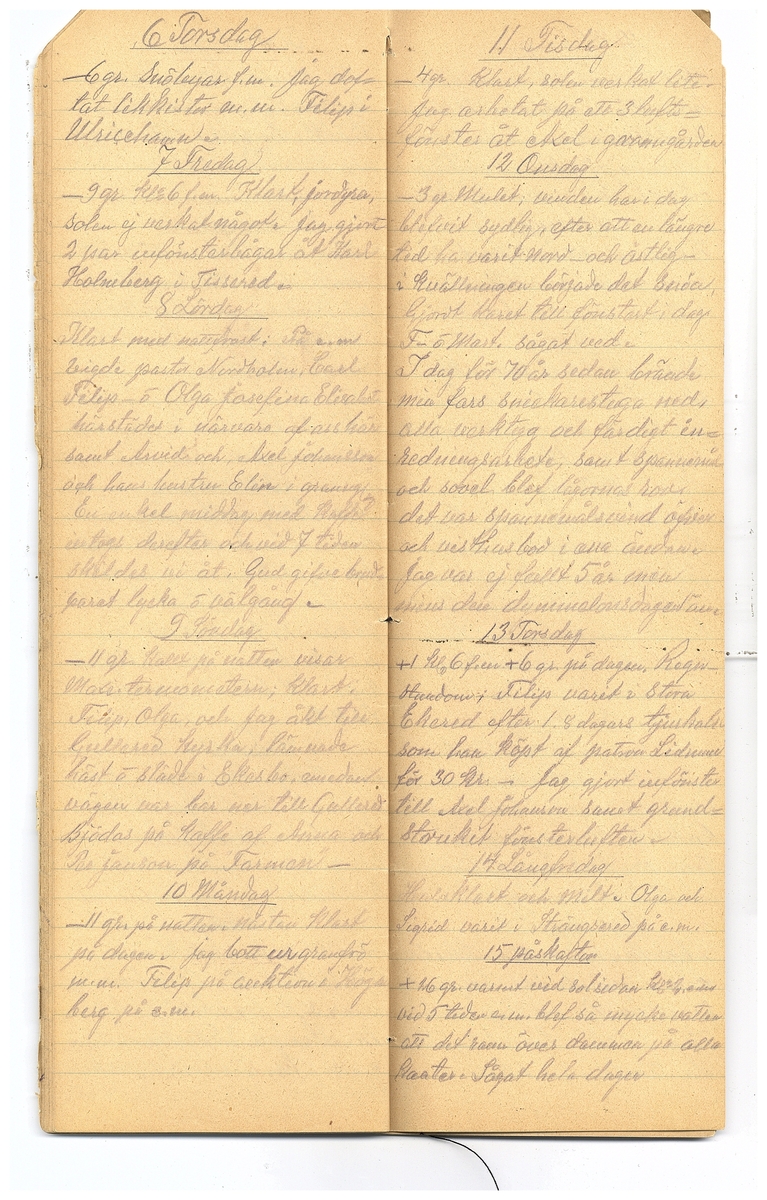 6 Torsdag
-6 gr. Snöbyar f.m. Jag dof-
tat likkistor m.m. Filip i
Ulricehamn.
7 Fredag
-9 gr. Kl 6 f.m. Klart,
solen ej verkat något. Jag gjort
2 par infönsterbågar åt Karl
Holmberg i Tissered.
8 Lördag
Klart med nattfrost. På e.m
vigde pastor Nordholm, Carl
Filip ō Olga Josefina Elisabet
härstädes i närvaro af oss här
samt Arvid och Axel Johanson
och hans hustru Elin i
En enkel middag med Kaffe
intogs derefter och vid 7 tiden
skildes vi åt. Gud gifve brud-
paret lycka ō välgång.
9 Söndag
-11 gr. kallt på natten visar
Max. termometern; klart.
Filip, Olga, och Jag åkt till
Gullered Kyrka, lämnade
häst ō släde i Ekesbo, emedan
vägen var bar ner till Gullered
Bjödos på Kaffe af Anna och
Janson på Tarmen -
10 Måndag
-11 gr. på natten. nästan klart
på dagen. jag granfrö
m.m. Filip på auktion i Högs-
berg på e.m.
11 Tisdag
-4 gr. Klart, solen verkat lite.
Jag arbetat på ett 3 lufts=
fönster åt Axel i granngården
12 Onsdag
-3 gr. Mulet, vinden har i dag
blefvit sydlig, efter att en längre
tid ha varit Nord- och östlig-
i Kvällningen började det snöa,
Gjort karet till fönstret i dag
F- ō Mart. sågat ved.
I dag för 70 år sedan brände
min fars snickarestuga ned,
alla verktyg och färdigt in=
redningsarbete, samt spannmål
och sovel blef lågornas rov
det var spannemålsvind ofver
och visthusbod i ena ändan.
Jag var ej fullt 5 år men
mins den dymmelonsdagen än.
13 Torsdag
+1 kl. 6 f.m +6 gr. på dagen, Regn
stundom; Filip varet i Stora
Ekered efter 1. 8 dagars tjurkalv
som han köpt af patron
för 30 Kr. - Jag gjort infönster
till Axel Johanson samt grund=
struket fönsterluften.
14 Långfredag
Halvklart och Milt. Olga och
Sigrid varit i Strängsered på e.m.
15 påskafton
+16 gr. varmt vid solsidan kl 2 e.m
vid 5 tiden e.m. blef så mycke vatten
att det rann över dammen på alla
kanter. Sågat hela dagen